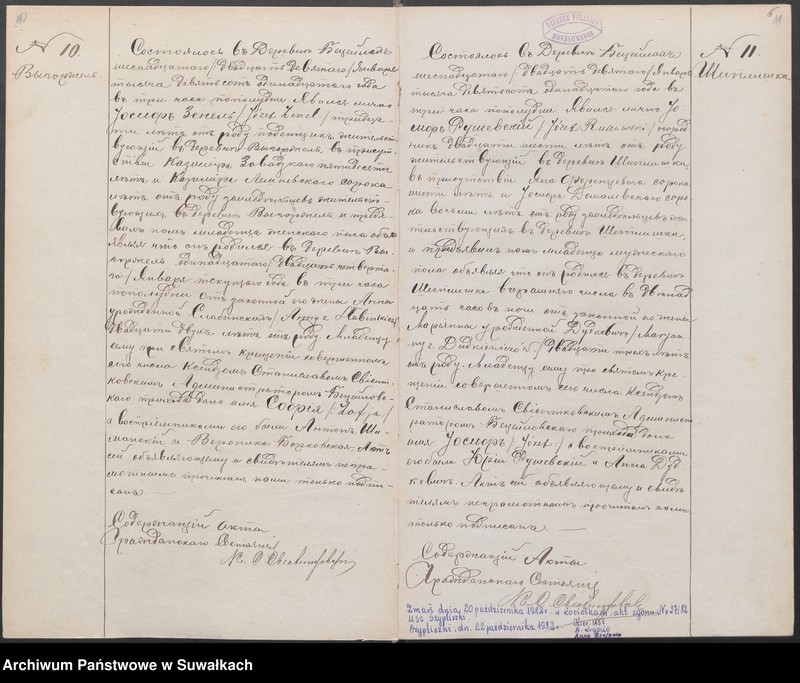 N 10.
Выгоржель
Состоялось въ Деревнѣ Бецейлахъ
шеснадцатаго /двадцать девятаго/ Января
тысяча девятьсотъ одинадцатаго года
въ три часа пополудни. Явился лично
Іосифъ Зенель /Józef Zenel/ тридца-
ти лѣтъ отъ роду поденщикъ жительст-
вующій въ деревнѣ Выгоржель, въ присут-
ствіи Казиміра Завадзкаго пятидесяти
лѣтъ и Казиміра сорока
лѣтъ отъ роду земледѣльцевъ жительст-
вующихъ въ деревнѣ Выгоржель и предъ-
явилъ намъ младенца женскаго пола объя-
вляя что онъ родился въ деревнѣ Вы-
горжель одинадцатаго /двадцать четверта-
го/ Января текущаго года въ три часа
пополудни отъ законной его жены Анны
урожденной
двадцати двухъ лѣтъ отъ роду. Младенцу
сему при святомъ крещеніи совершенномъ
сего числа Ксендзомъ Станиславомъ
Администраторомъ Бецейлов-
скаго прихода дано имя Софія /Zofja/
а воспріемниками его были Антонъ Ши-
манскій и Вероника Борковская. Актъ
сей объявляющему и свидѣтелямъ негра-
мотнымъ прочитанъ нами только подпи-
санъ.
Содержащій Акты
Гражданскаго Состоянія
6
N 11.
Шиплишка
Состоялось въ Деревнѣ Бецейлахъ
шеснадцатаго /двадцать девятаго/ Января
тысяча девятьсотъ одинадцатаго года въ
три часа пополудни. Явился лично Іо-
сифъ Рушевскій /Józef Ruszewski/
двадцати шести лѣтъ отъ роду
жительствующій въ деревнѣ Шиплишка,
въ присутствіи Яна сорока
шести лѣтъ и Іосифа соро-
ка восьми лѣтъ отъ роду земледѣльцевъ жи-
тельствующихъ въ деревнѣ Шиплишка,
и предъявилъ намъ младенца мужескаго
пола объявляя что онъ родился въ деревнѣ
Шиплишка вчерашняго числа въ двенад-
цать часовъ ночи отъ законной его жены
Марьянны урожденной Дудкевичъ /Marjan-
ny z Dudkiewiczów/ двадцати трехъ лѣтъ
отъ роду. Младенцу сему при святомъ кре-
щеніи совершенномъ сего числа Ксендзомъ
Станиславомъ Админист-
раторомъ Бецейловскаго прихода дано
имя Іосифъ /Józef/ а воспріемниками
его были Юрій Рушевскій и Анна Дуд-
кевичъ. Актъ сей объявляющему и свидѣ-
телямъ неграмотнымъ прочитанъ нами
только подписанъ.
Содержащій Акты
Гражданскаго Состоянія
Zmarł dnia 20 października 1982r. w Kociołkach, akt zgonu Nr 27/82
USC Szypliszki
Szypliszki, dn. 22 października 1982r.
Kier. USC
Archiwum Państwowe w Suwałkach